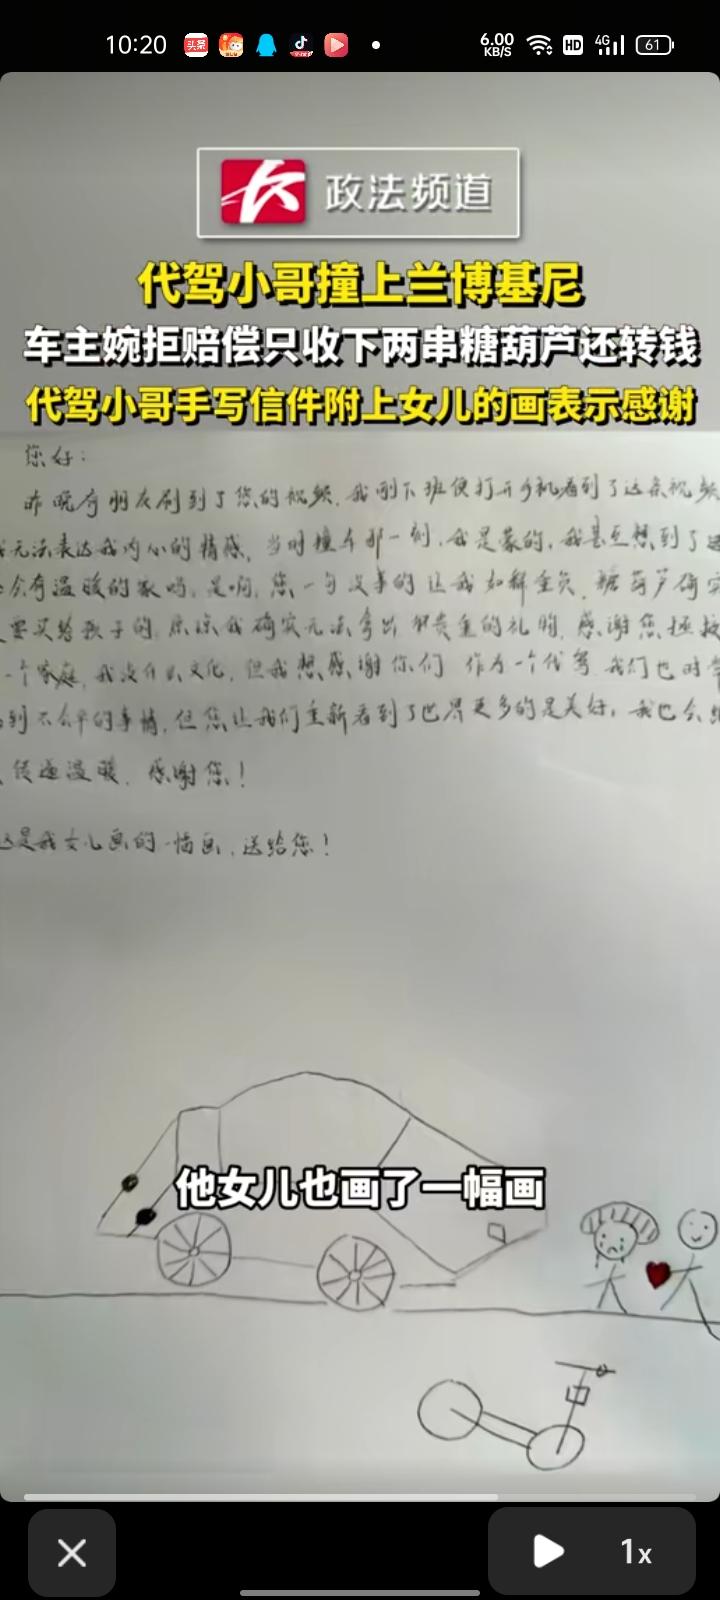 10:20
头条
6.00
KB/S
HD
4G
61
政法频道
代驾小哥撞上兰博基尼
车主婉拒赔偿只收下两串糖葫芦还转钱
代驾小哥手写信件附上女儿的画表示感谢
您好:
昨晚有朋友刷到了您的视频,我刚下班便打开手机看到了这条视频
无法表达我内心的情感,当时撞车那一刻,我是蒙的,我甚至想到了
会有温暖的家吗,是啊,您一句没事的让我如释重负,糖葫芦确实
要买给孩子的,原谅我确实无法拿出贵重的礼物,感谢您拯救
一个家庭,我没什么文化,但我想感谢你们 作为一个代驾 我们也时常
到不公平的事情,但您让我们重新看到了世界更多的是美好,我也会
传递温暖,感谢您!
这是我女儿画的一幅画,送给您!
他女儿也画了一幅画
1x